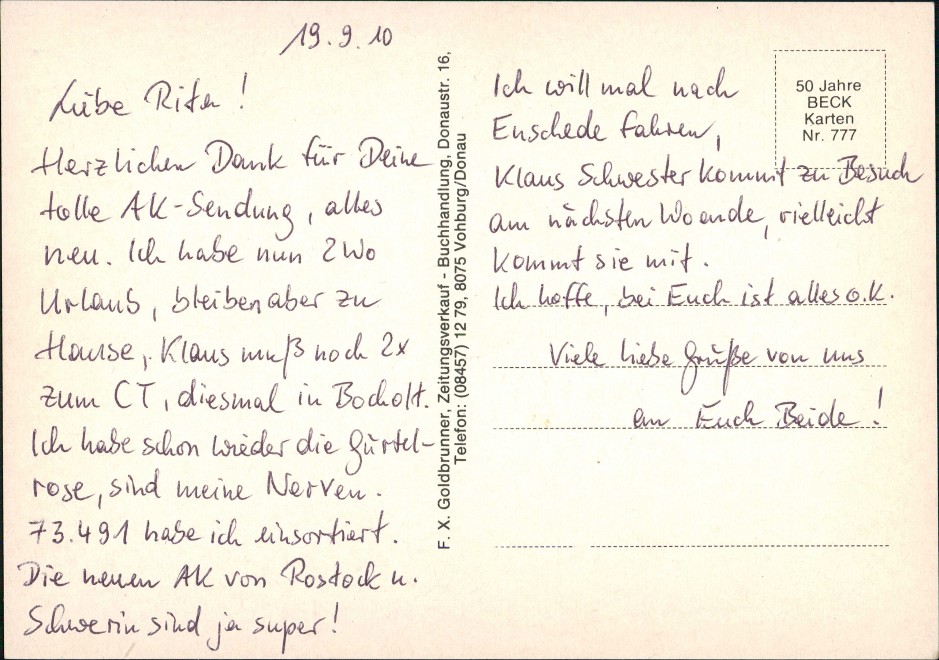 19.9.10
Liebe Rita!
Herzlichen Dank für Deine
tolle AK-Sendung, alles
neu. Ich habe nun 2 Wo
Urlaub, bleiben aber zu
Hause, Klaus muß noch 2x
zum CT, diesmal in Bocholt.
Ich habe schon wieder die Gürtel-
rose, sind meine Nerven.
73.491 habe ich einsortiert.
Die neuen AK von Rostock u.
Schwerin sind ja super!
F. X. Goldbrunner, Zeitungsverkauf - Buchhandlung, Donaustr. 16,
Telefon: (08457) 12 79, 8075 Vohburg/Donau
50 Jahre
BECK
Karten
Nr. 777
Ich will mal nach
Enschede fahren,
Klaus Schwester kommt zu Besuch
am nächsten Woende, vielleicht
kommt sie mit.
Ich hoffe, bei Euch ist alles o.k.
Viele liebe Grüße von uns
an Euch Beide!